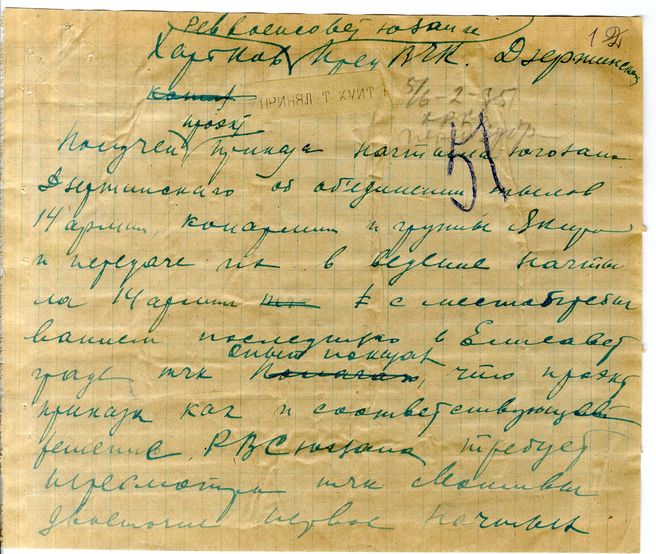 Реввоенсовет Югозап
Харьков Пред ВЧК. Дзержинском
1
ПРИНЯЛ Т. КУИТ
5/6-2-35
проэкт
Получен приказа начтыла Югозапа
51
Дзержинскаго об объединении тылов
14 армии, конармии и группы Якира
и передаче их в ведение начты
ла 14 армии с местопребы
ванием последняго в Елисавет
опыт показал
граде тчк что проэкт
приказа как и соответствующее
решение РВС Югозапа требует
пересмотра тчк Мотивы
двоеточие первое начтыла